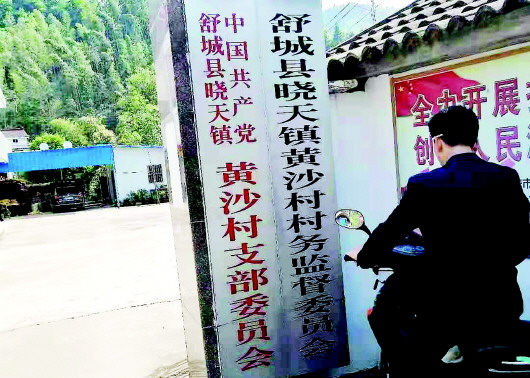 舒城县晓天镇黄沙村村务监督委员会
中国共产党
舒城县晓天镇
黄沙村支部委员会
全力开展
创
人民